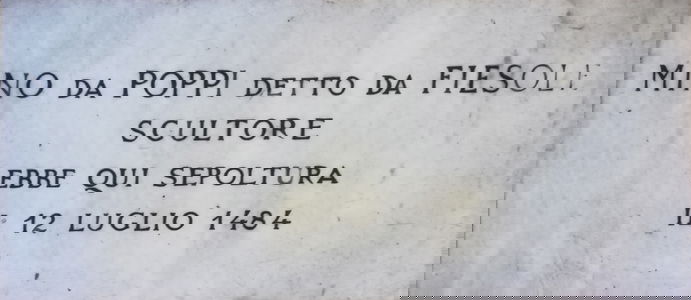 MINO DA POPPI DETTO DA FIESOLE M
SCULTORE
EBBE QUI SEPOLTURA
IL 12 LUGLIO 1484